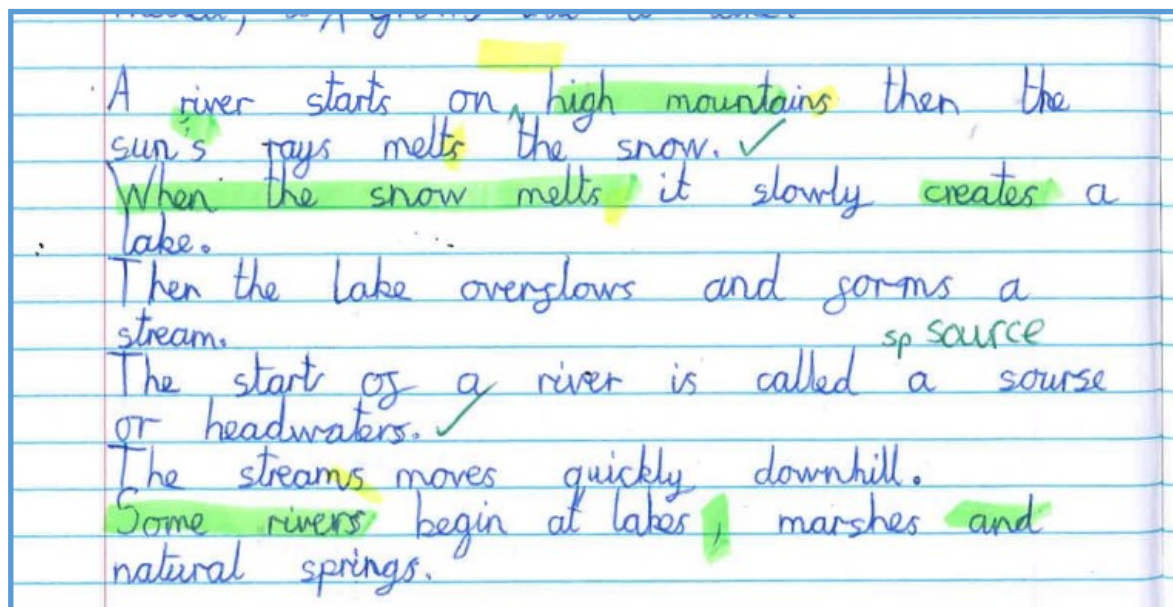 A river starts on high mountains then the
sun's rays melts the snow.
When the snow melts it slowly creates a
lake.
Then the lake overflows and forms a
stream.
sp source
The start of a river is called a sourse
or headwaters.
The streams moves quickly downhill.
Some rivers begin at lakes, marshes and
natural springs.